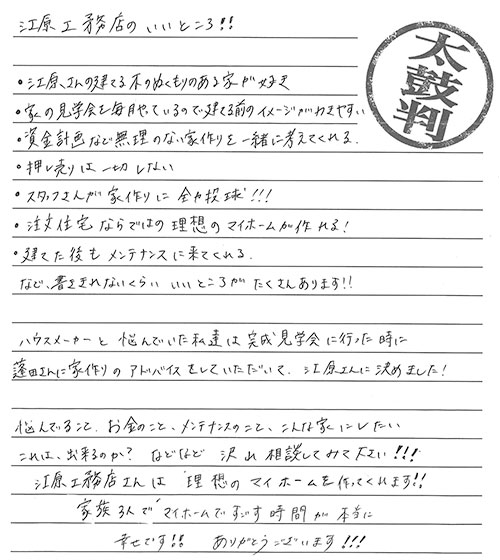 江原工務店のいいところ!!
太鼓判
・江原さんの建てる木のぬくもりのある家が好き
・家の見学会を毎月やっているので建てる前のイメージがわきやすい
・資金計画など無理のない家作りを一緒に考えてくれる。
・押し売りは一切しない
・スタッフさんが家作りに全力投球!!!
・注文住宅ならではの理想のマイホームが作れる!
・建てた後もメンテナンスに来てくれる。
など、書ききれないくらいいいところがたくさんあります!!
ハウスメーカーと悩んでいた私達は完成見学会に行った時に
蓬田さんに家作りのアドバイスをしていただいて、江原さんに決めました!
悩んでること、お金のこと、メンテナンスのこと、こんな家にしたい
これは、出来るのか? などなど 沢山相談してみて下さい!!!
江原工務店さんは 理想のマイホームを作ってくれます!!
家族3人でマイホームですごす時間が本当に
幸せです!! ありがとうございます!!!